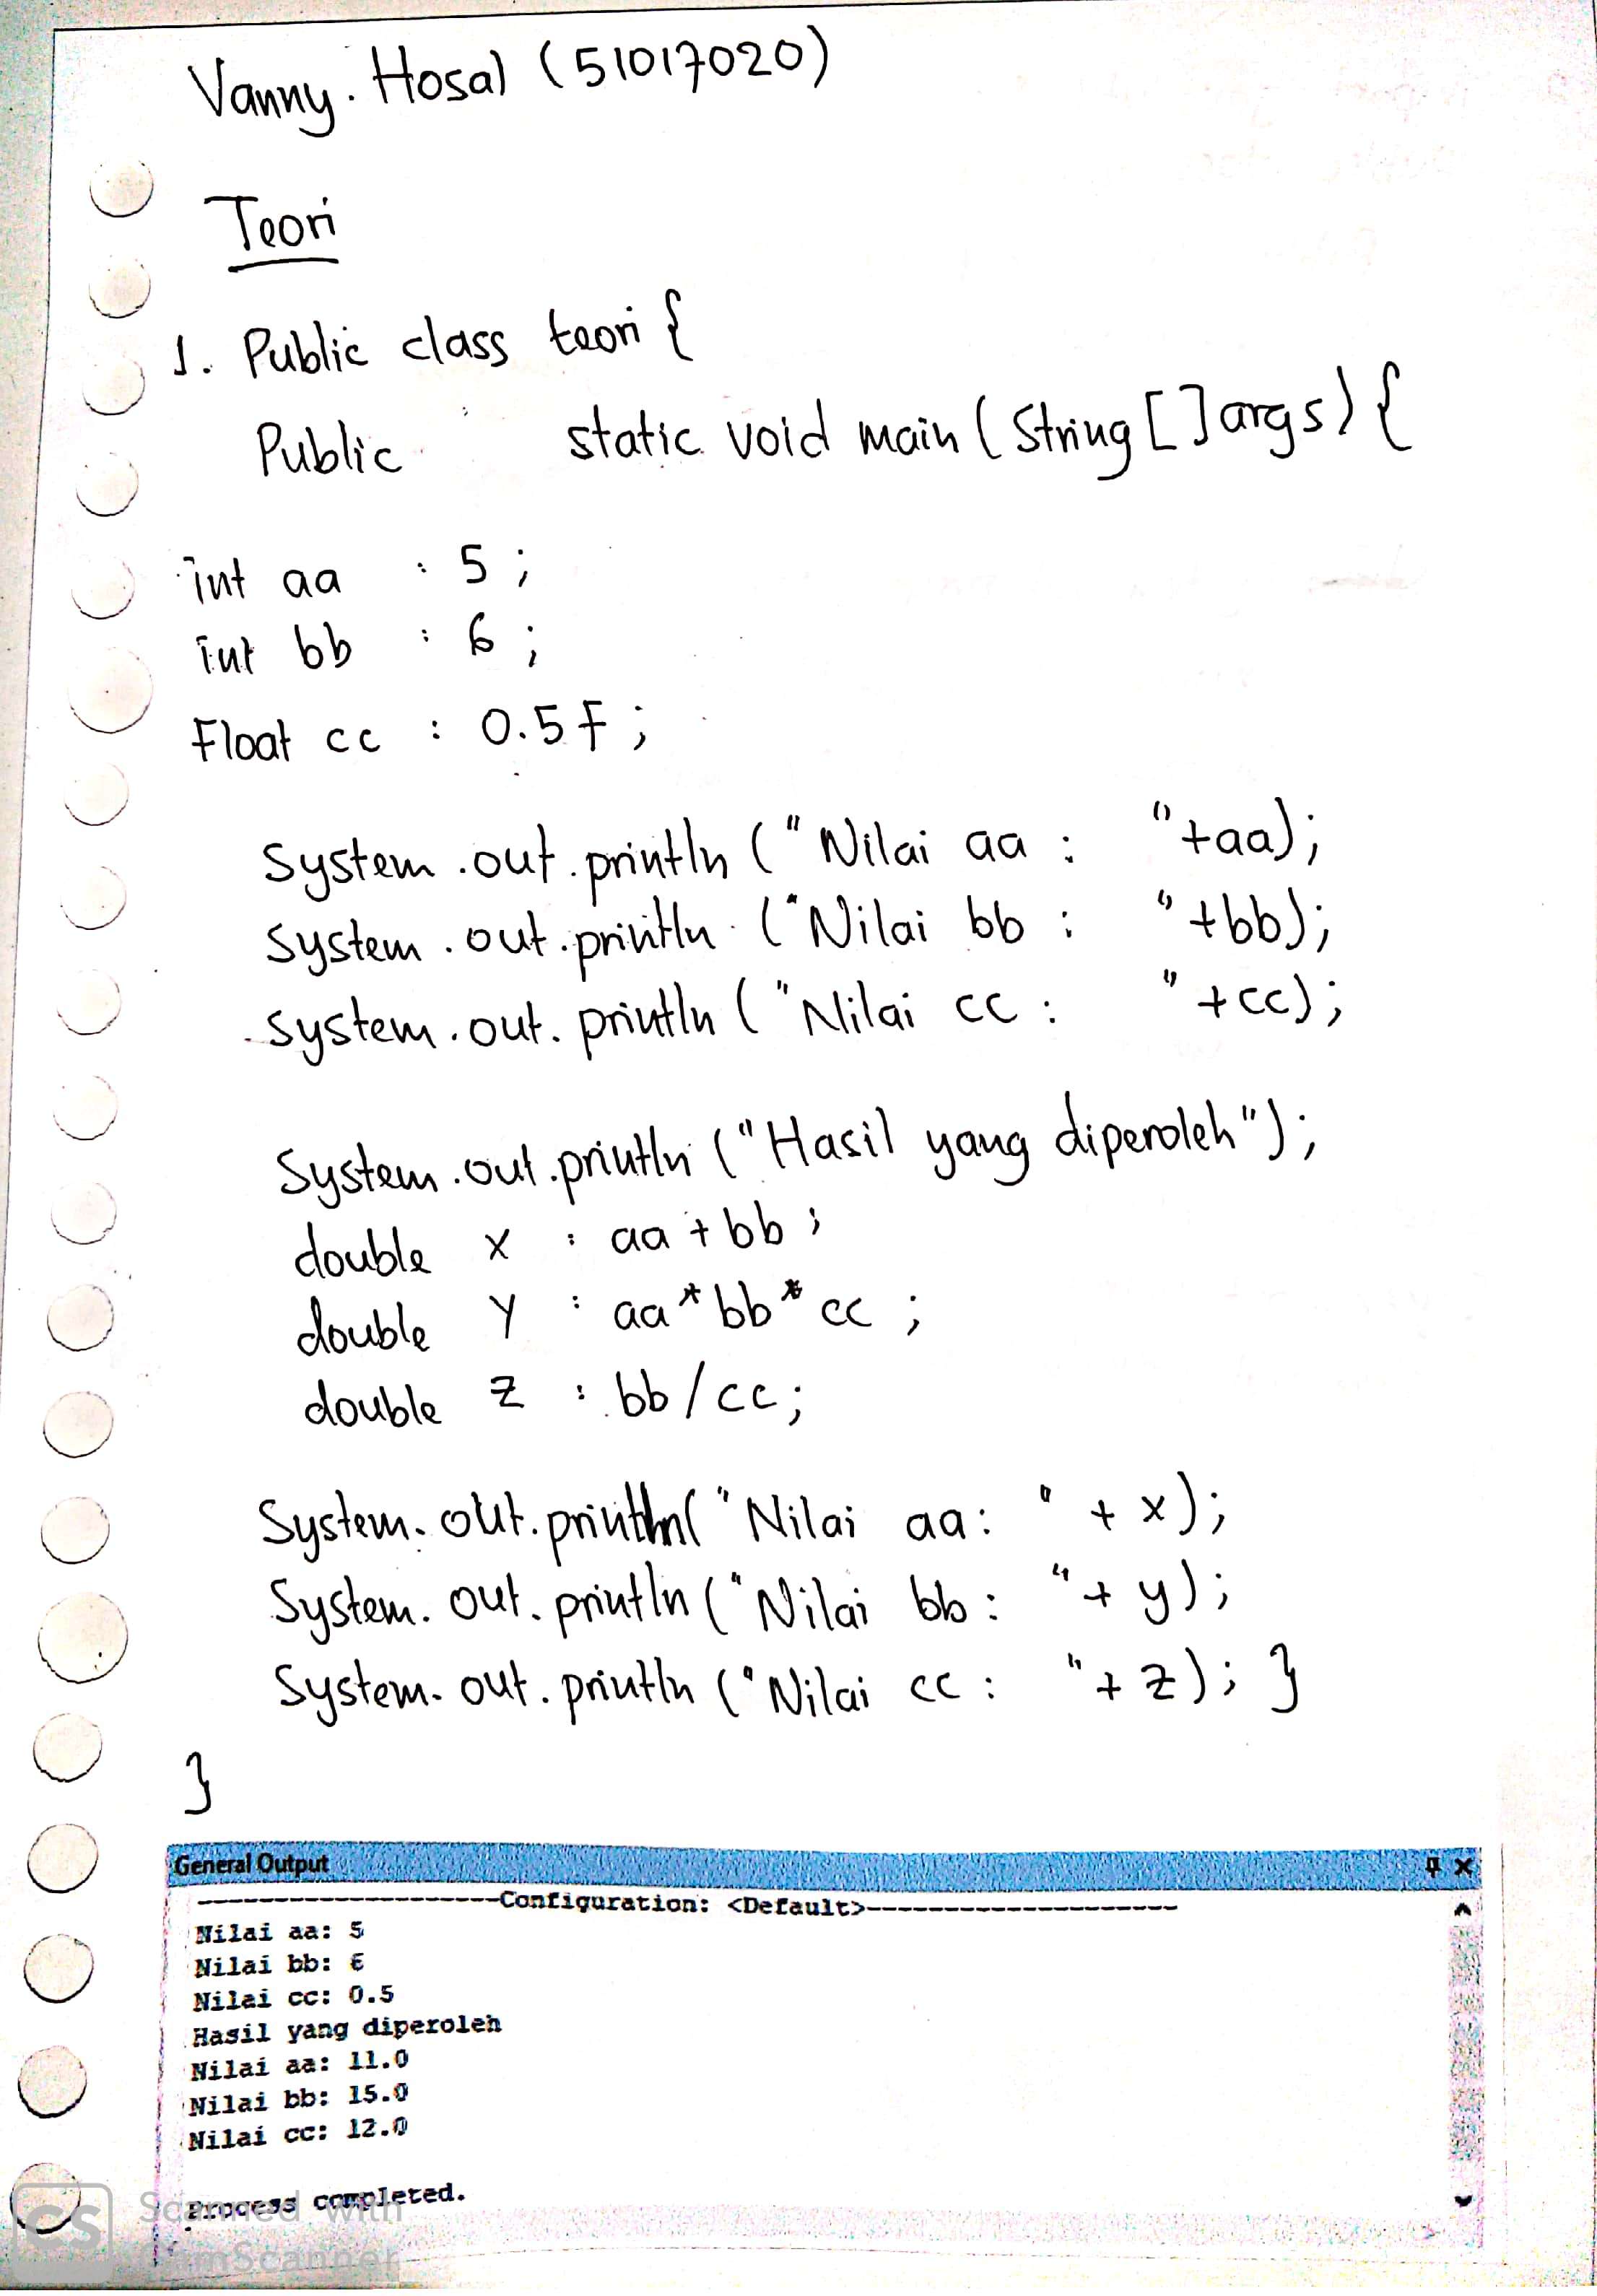 Vanny. Hosal (51017020)
Teori
1. Public class teori {
Public static void main (String [] args) {
int aa : 5 ;
int bb : 6 ;
Float cc : 0.5F ;
System .out .println (" Nilai aa : "+aa);
System .out .println ("Nilai bb : "+bb);
System .out. println ("Nilai cc : "+cc);
System .out .println ("Hasil yang diperoleh");
double x : aa + bb ;
double y : aa * bb * cc ;
double z : bb / cc ;
System. out. println( "Nilai aa: " + x);
System. out. println ("Nilai bb : "+ y);
System. out. println ("Nilai cc : "+ z); }
}
General Output
--------------------Configuration: <Default>--------------------
Nilai aa: 5
Nilai bb: 6
Nilai cc: 0.5
Hasil yang diperoleh
Nilai aa: 11.0
Nilai bb: 15.0
Nilai cc: 12.0
Process completed.
CS Scanned with
CamScanner